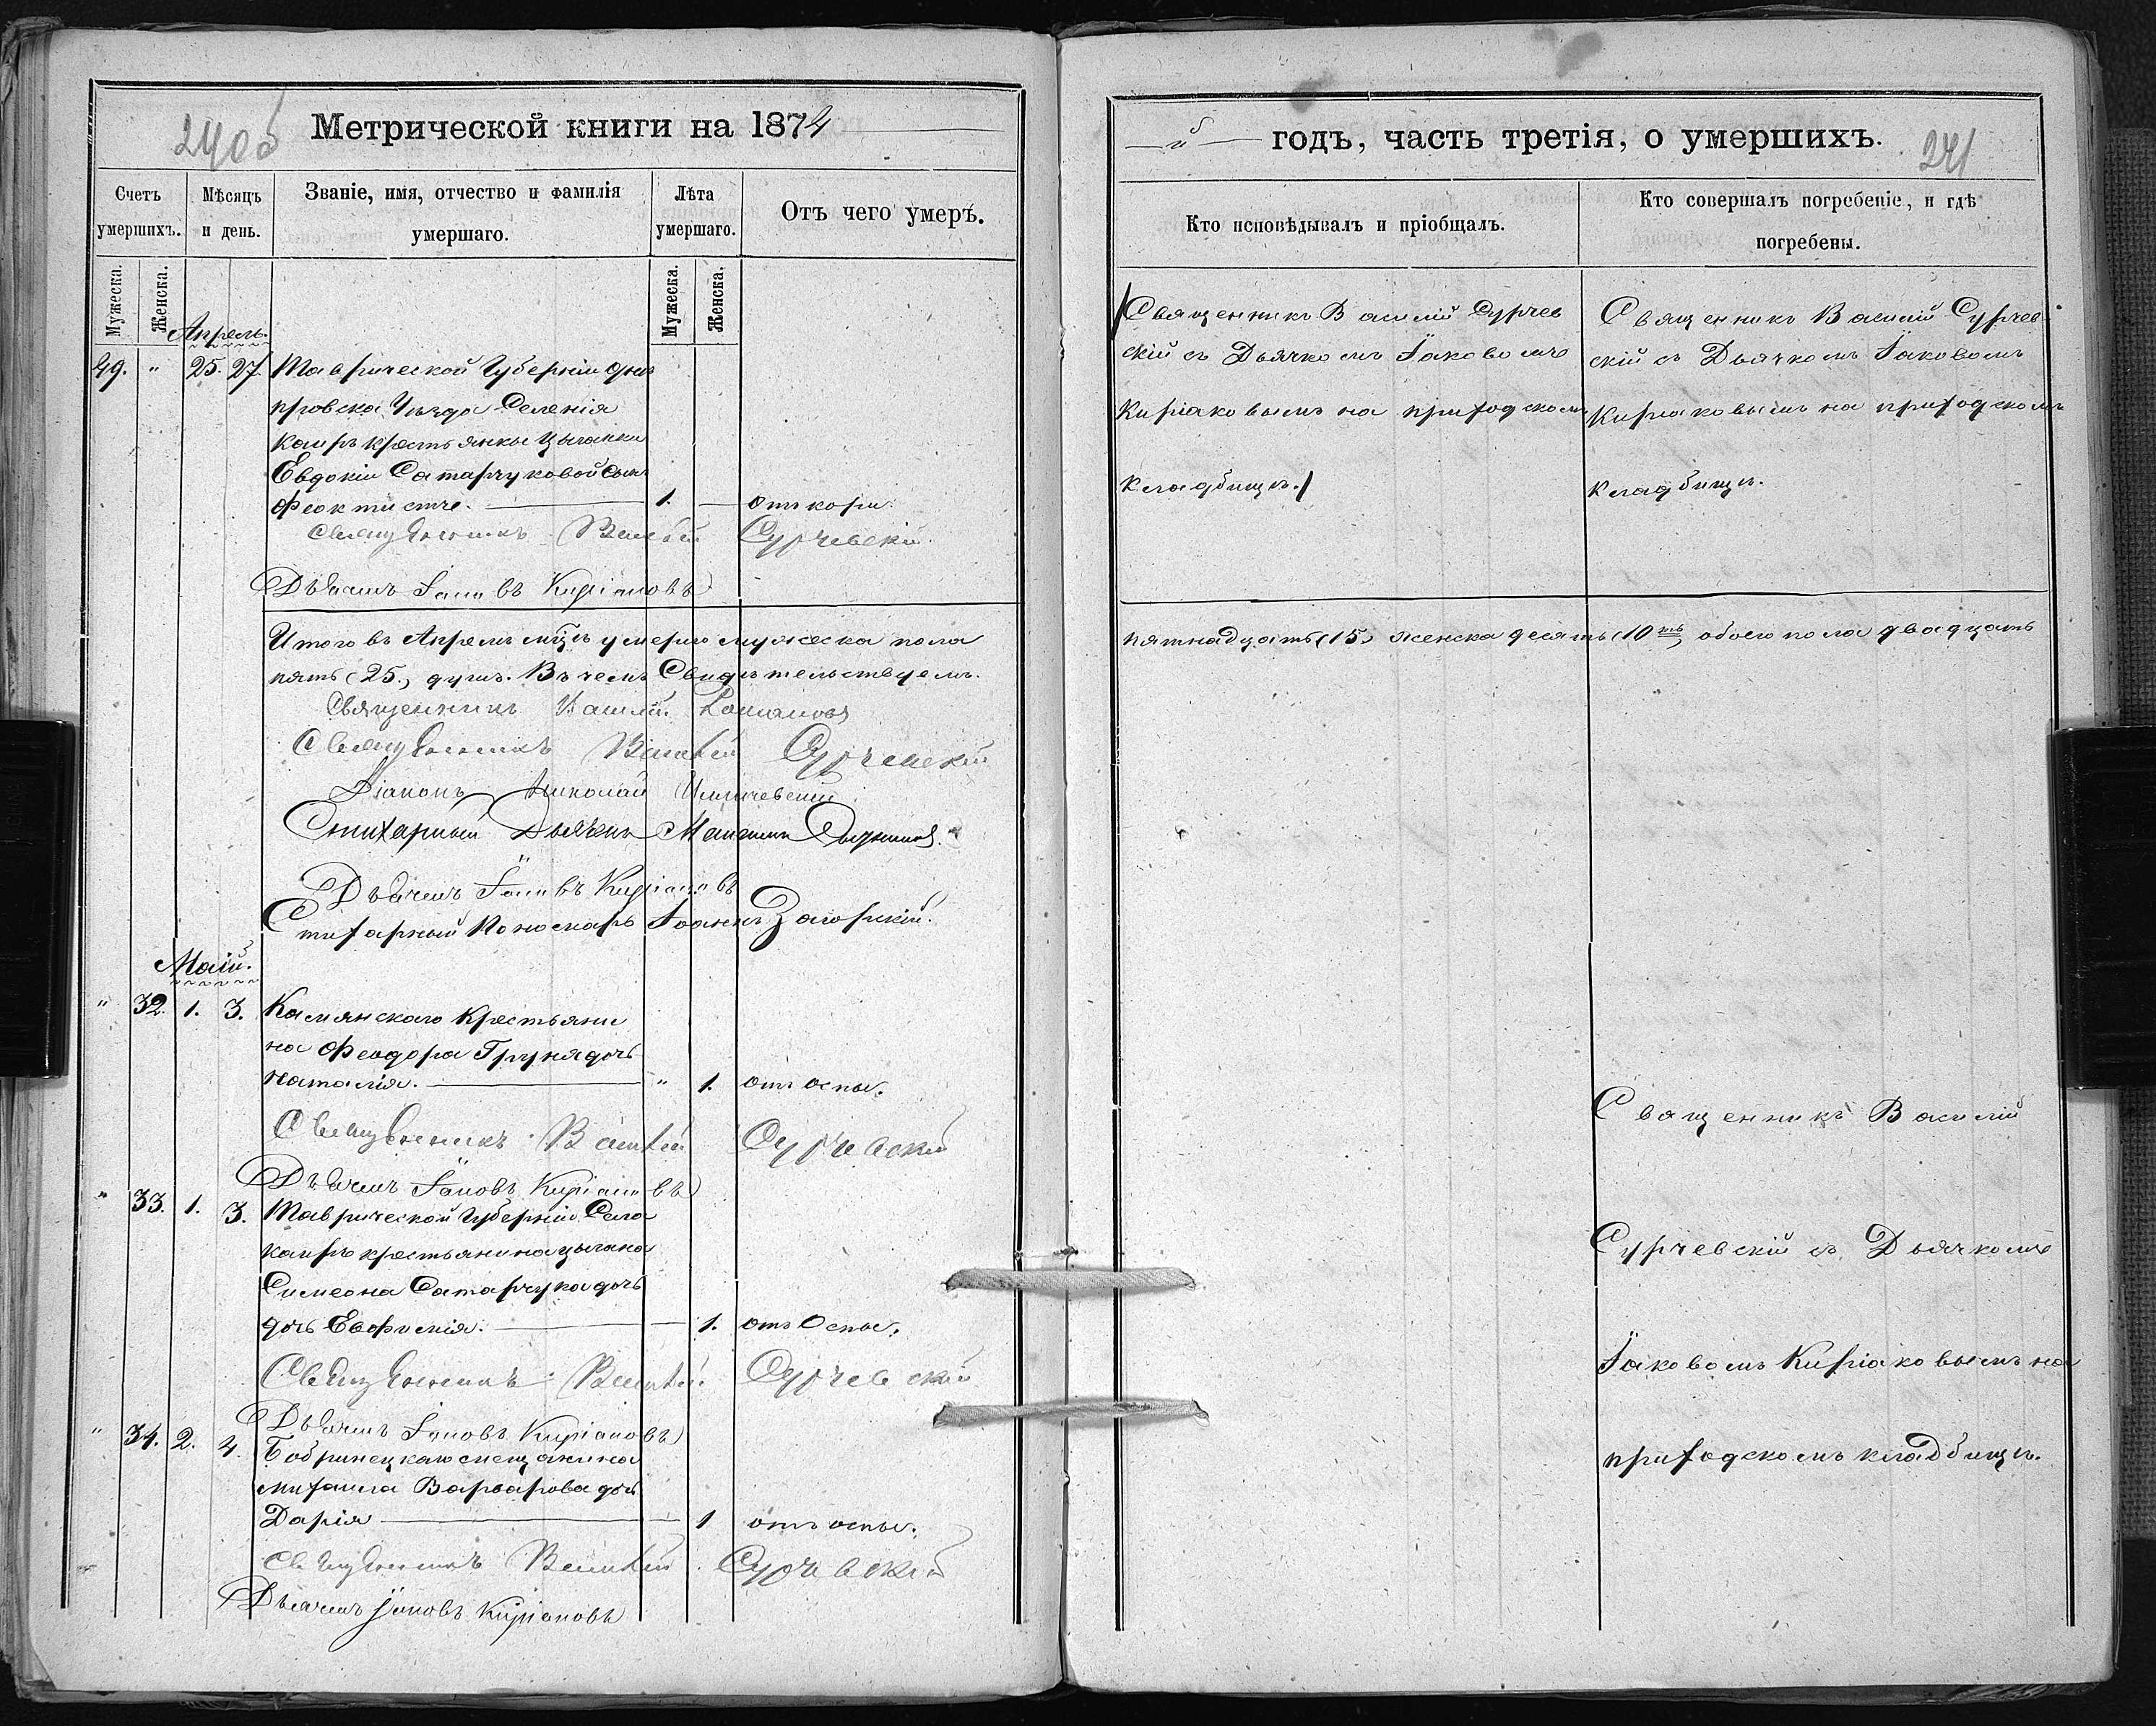 240об
Метрической книги на 1874
Счетъ умершихъ.
Мѣсяцъ и день.
Званіе, имя, отчество и фамилія умершаго.
Лѣта умершаго.
Отъ чего умеръ.
Мужеска.
Женска.
Мужеска.
Женска.
Апрель.
49. " 25. 27. Таврической Губерніи Дне
провска Уѣзда Селенія
Каиръ крестьянки цыганки
Евдокіи Сатарчуковой сынъ
Феоктистъ. — 1. — отъ кори.
Священникъ Василій Сурчевскій
Дьячекъ Іаковъ Киріаковъ
Итого въ Апрелѣ мцѣ умерло мужеска пола
пять (25.) душъ. Въ чемъ Свидѣтельствуемъ.
Священникъ Василій
Священникъ Василій Сурчевскій
Діаконъ Николай
Стихарный Дьячекъ
Дьячекъ Іаковъ Киріаковъ
Стихарный Пономарь Іоаннъ Загорскій.
Маій.
" 32. 1. 3. Камянскаго Крестьяни
на Феодора Груня дочь
Наталія. — " 1. отъ оспы.
Священникъ Василій Сурчевскій
Дьячекъ Іаковъ Киріаковъ
" 33. 1. 3. Таврической Губерніи Села
каиръ крестьянина цыгана
Симеона Сатарчука дочь
дочь Евфимія. — 1. отъ Оспы.
Священникъ Василій Сурчевскій
Дьячекъ Іаковъ Киріаковъ
" 34. 2. 4. Бобринецкаго мещанина
михаила Варварова дочь
Дарія — 1 отъ оспы.
Священникъ Василій Сурчевскій
Дьячекъ Іаковъ Киріаковъ
й годъ, часть третія, о умершихъ.
241
Кто исповѣдывалъ и пріобщалъ.
Кто совершалъ погребеніе, и гдѣ погребены.
Священникъ Василій Сурчев
скій съ Дьячкомъ Іаковомъ
Киріаковымъ на приходскомъ
кладбищѣ.
Священникъ Василій Сурчев
скій съ Дьячкомъ Іаковомъ
Киріаковымъ на приходскомъ
кладбищѣ.
пятнадцать (15) женска десять (10ть) обоего пола двадцать
Священникъ Василій
Сурчевскій съ Дьячкомъ
Іаковомъ Киріаковымъ на
приходскомъ кладбищѣ.